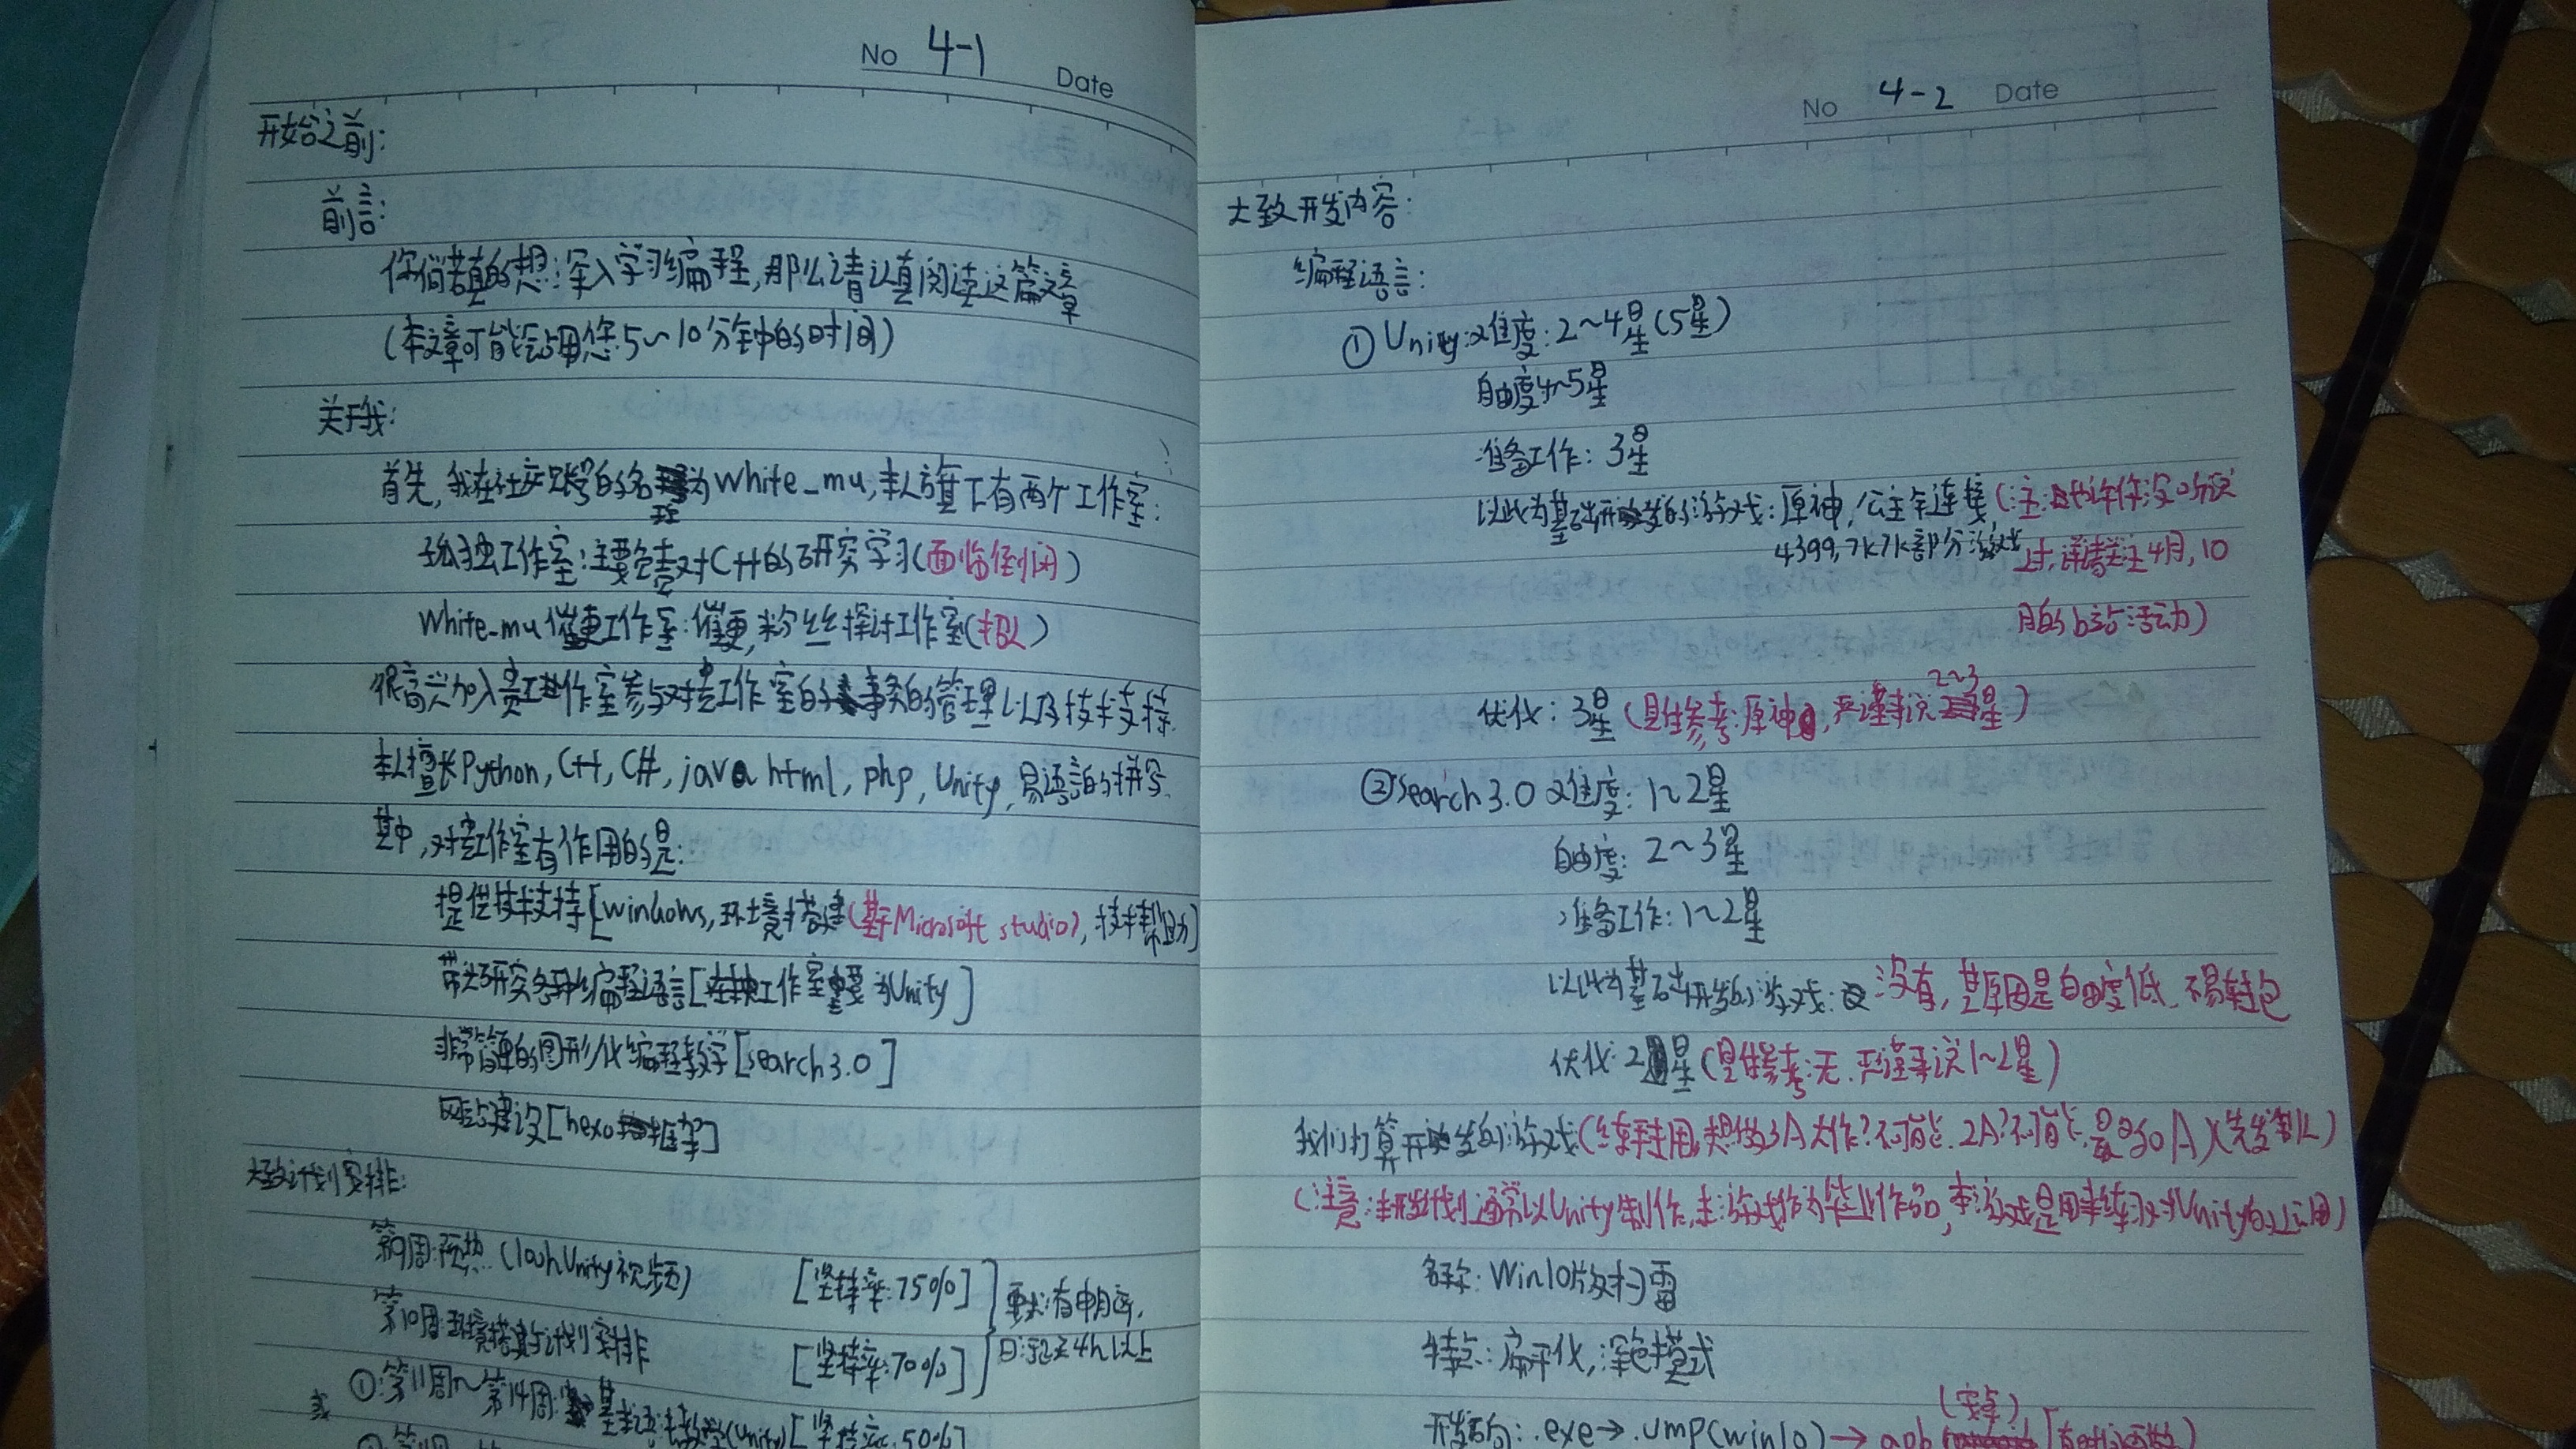 No 4-1 Date
开始之前:
前言:
你倘若真的想深入学习编程,那么请认真阅读这篇文章
(本文章可能会占用您5~10分钟的时间)
关于我:
首先,我在社交账号的名为White_mu,本人旗下有两个工作室:
孤独工作室:主要负责对C++的研究学习(面临倒闭)
White_mu催更工作室:催更,粉丝探讨工作室(招人)
很高兴加入贵工作室参与对贵工作室的事务的管理以及技术支持.
本人擅长Python, C++, C#, java html, php, Unity, 易语言的拼写.
其中,对贵工作室有作用的是:
提供技术支持[windows,环境搭建(基于Microsoft studio),技术帮助]
带动研究各种编程语言[在本工作室主要为Unity]
非常简单的图形化编程教学[search3.0]
网站建设[hexo框架]
大致计划安排:
第9周:预热 (100h Unity视频) [坚持率:75%]
要求:有电脑,
第10周:环境搭建的计划安排 [坚持率:70%]
日记录4h以上
或 ①:第11周~第14周: 基本语法教学(Unity) [坚持率:50%]
No 4-2 Date
大致开发内容:
编程语言:
①Unity:难度:2~4星(5星)
自由度4~5星
准备工作: 3星
以此为基础开发的游戏:原神,公主连接(注:也许你没听说
4399,7k7k部分游戏 过,详情关注4月,10
月的b站活动)
优化: 3星(具体参考:原神,严谨来说2~3星)
②Search3.0 难度: 1~2星
自由度: 2~3星
准备工作: 1~2星
以此为基础开发的游戏: 没有,其原因是自由度低、不易转包
优化: 2星(具体参考:无.严谨来说1~2星)
我们打算开发的游戏(练手用,想做3A大作?不可能.2A?不可能,最多0A)(先发制人)
(注意:本开发计划通常以Unity制作,本游戏作为毕业作品,本游戏是用来练习对Unity的运用)
名称: Win10版扫雷
特点:扁平化,深色模式
(安卓)
开发方向: .exe→.ump(win10)→